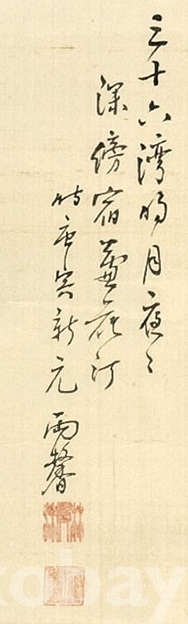 三十六湾明月夜々
深傍宿蘆花汀
時庚寅新元 雨馨
kobay